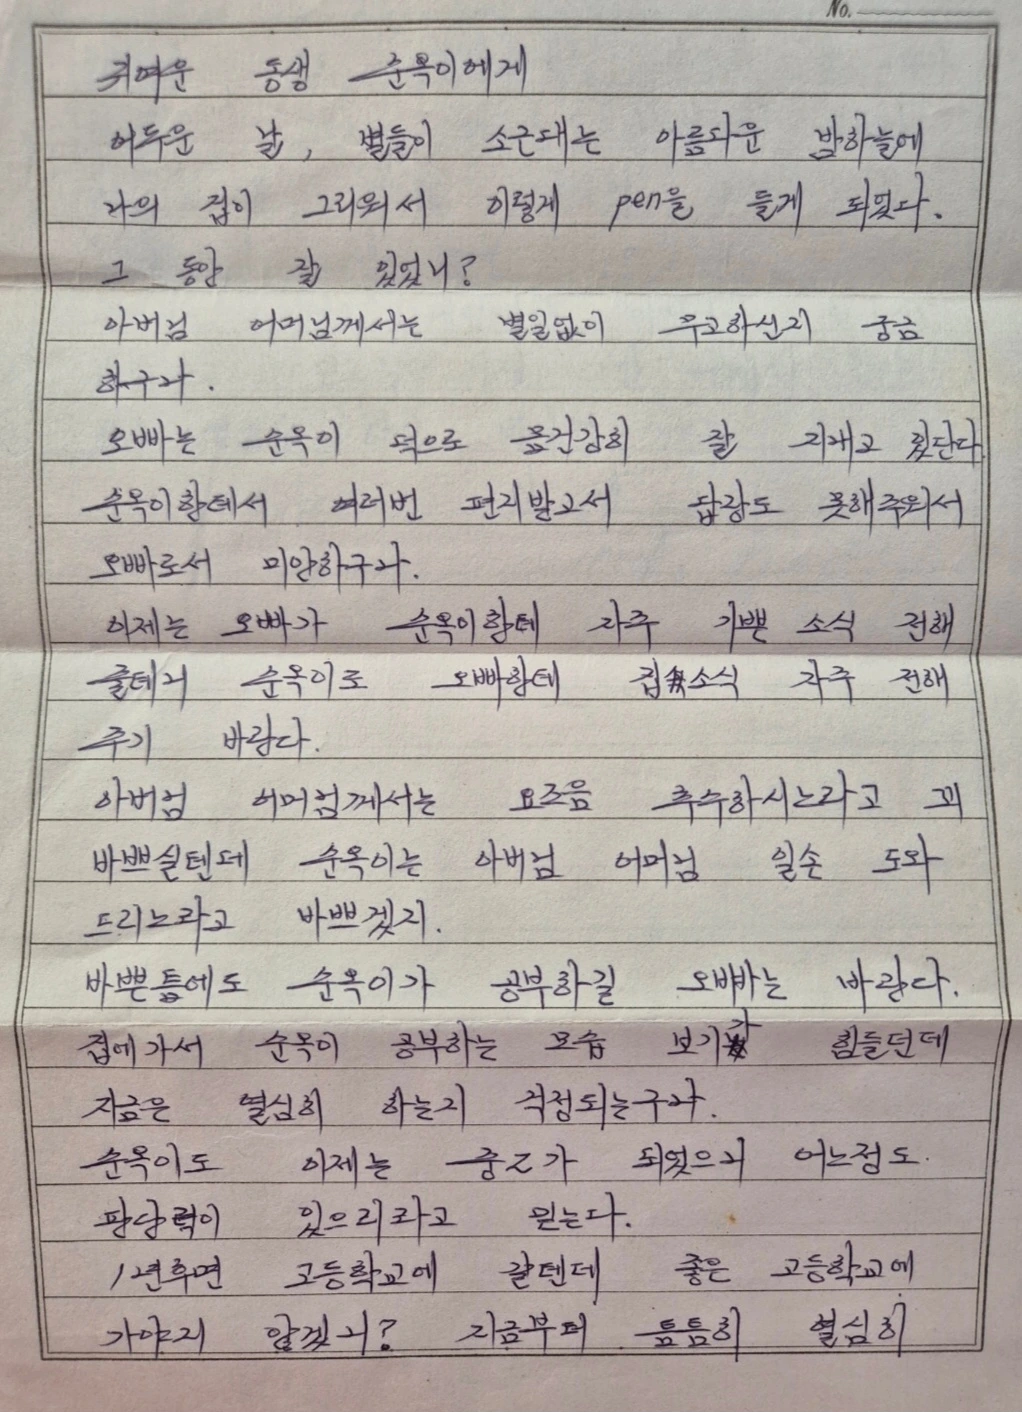 No.
귀여운 동생 순옥이에게
어두운 날, 별들이 소근대는 아름다운 밤하늘에
나의 집이 그리워서 이렇게 pen을 들게 되었다.
그 동안 잘 있었니?
아버님 어머님께서는 별일없이 무고하신지 궁금
하구나.
오빠는 순옥이 덕으로 몸건강히 잘 지내고 있단다
순옥이한테서 여러번 편지받고서 답장도 못해주워서
오빠로서 미안하구나.
이제는 오빠가 순옥이한테 자주 기쁜 소식 전해
줄테니 순옥이도 오빠한테 집소식 자주 전해
주기 바란다.
아버님 어머님께서는 요즈음 추수하시느라고 꽤
바쁘실텐데 순옥이는 아버님 어머님 일손 도와
드리느라고 바쁘겠지.
바쁜틈에도 순옥이가 공부하길 오빠는 바란다.
집에가서 순옥이 공부하는 모습 보기가 힘들던데
지금은 열심히 하는지 걱정되는구나.
순옥이도 이제는 중2가 되었으니 어느정도
판단력이 있으리라고 믿는다.
1년후면 고등학교에 갈텐데 좋은 고등학교에
가야지 알겠니? 지금부터 틈틈히 열심히